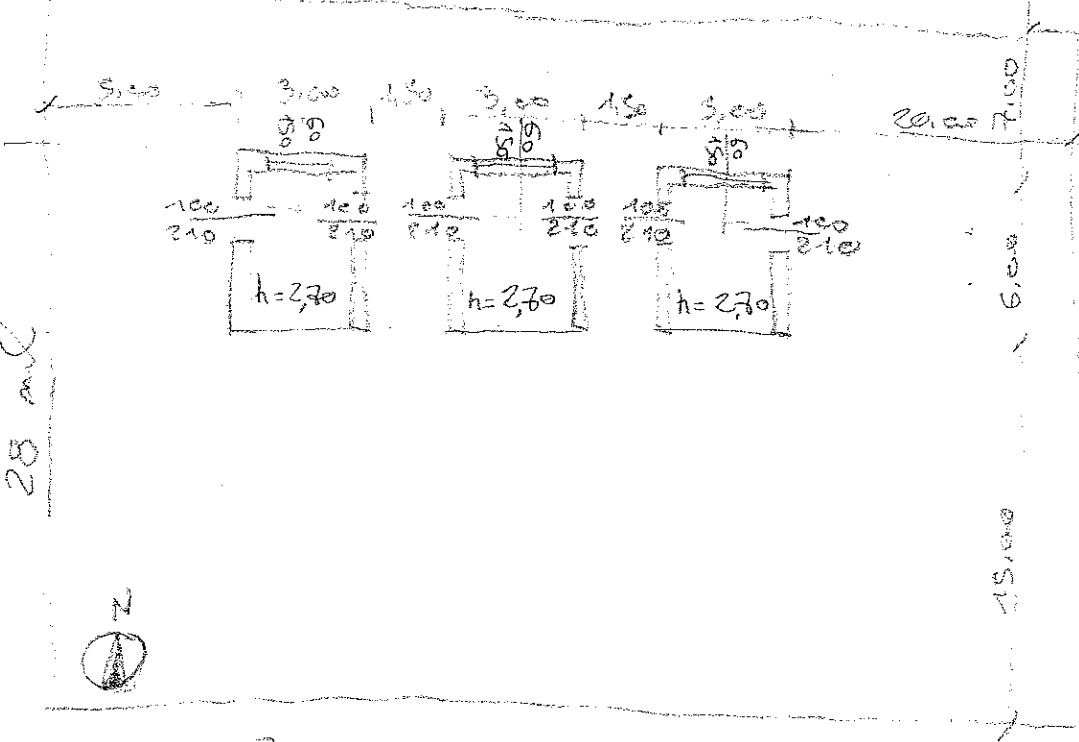 5,00 3,00 1,50 3,00 1,50 3,00 20,00
7,00
60 150
60 150
60 150
100 210
100 210
100 210
100 210
100 210
100 210
h=2,70 h=2,70 h=2,70
6,00
28
15,00
N